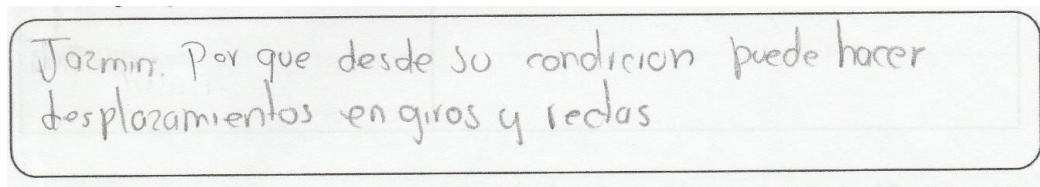 Jazmin. Por que desde su condicion puede hacer
desplazamientos en giros y rectas